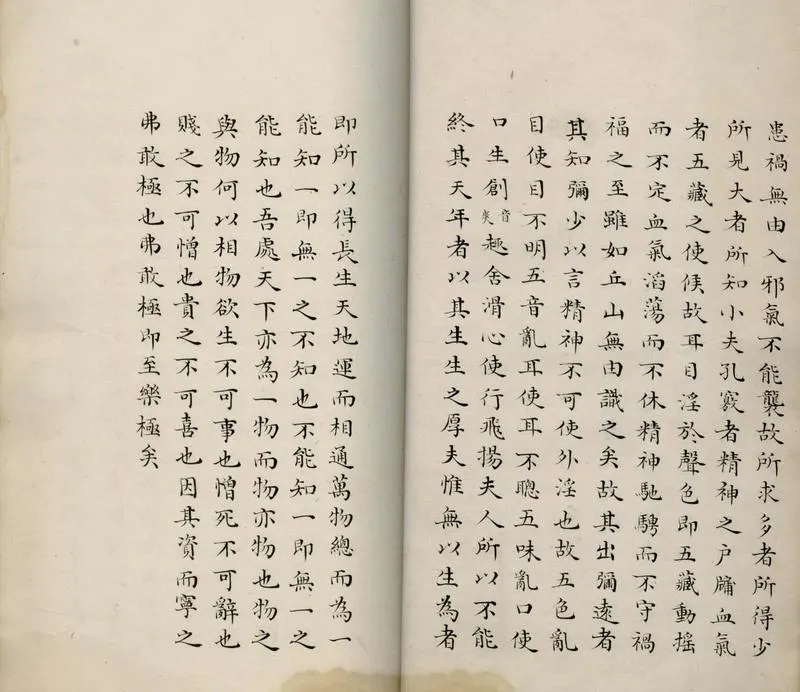 患禍無由入邪氣不能襲故所求多者所得少
所見大者所知小夫孔竅者精神之户牖血氣
者五藏之使候故耳目淫於聲色即五藏動搖
而不定血氣滔蕩而不休精神馳騁而不守禍
福之至雖如丘山無由識之矣故其出彌遠者
其知彌少以言精神不可使外淫也故五色亂
目使目不明五音亂耳使耳不聰五味亂口使
口生創音爽趣舍滑心使行飛揚夫人所以不能
終其天年者以其生生之厚夫惟無以生為者
即所以得長生天地運而相通萬物總而為一
能知一即無一之不知也不能知一即無一之
能知也吾處天下亦為一物而物亦物也物之
與物何以相物欲生不可事也憎死不可辭也
賤之不可憎也貴之不可喜也因其資而寧之
弗敢極也弗敢極即至樂極矣